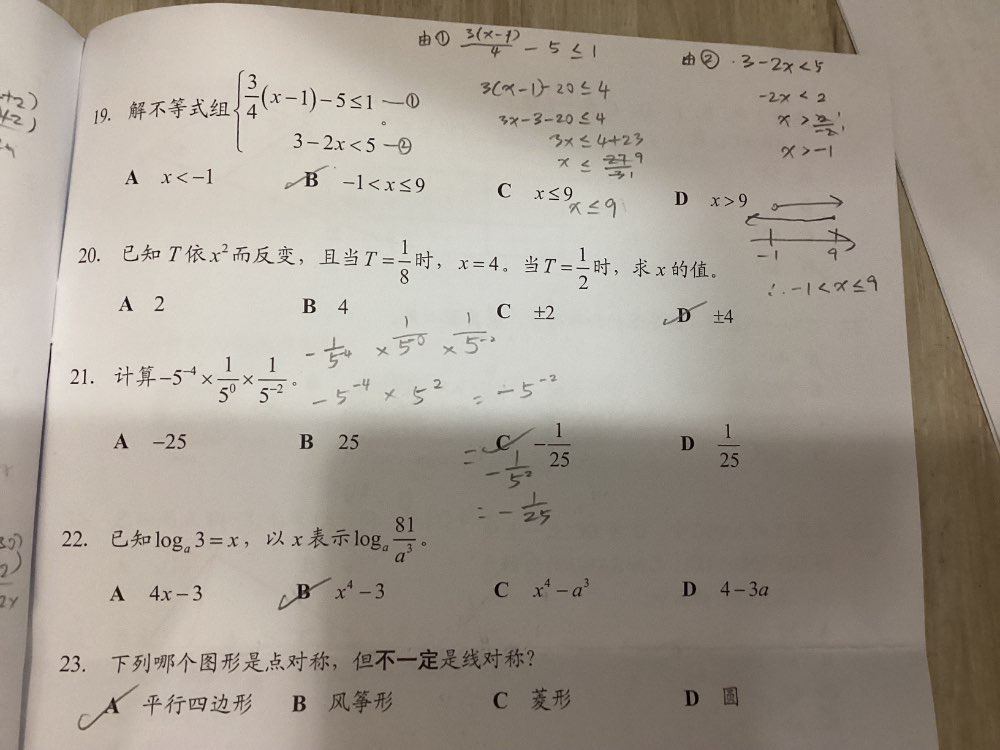 由① 3(x-1)/4 - 5 ≤ 1
由② 3-2x<5
3(x-1)-20 ≤ 4
-2x < 2
3x-3-20 ≤ 4
x > 2/-2
3x ≤ 4+23
x > -1
x ≤ 27/3 9
19. 解不等式组 { 3/4(x-1)-5≤1 —①
3-2x<5 —② 。
A x<-1 B -1<x≤9 C x≤9 D x>9
x≤9
-1 9
∴ -1<x≤9
20. 已知 T 依 x² 而反变，且当 T=1/8 时，x=4。当 T=1/2 时，求 x 的值。
A 2 B 4 C ±2 D ±4
-1/5⁴ × 1/5⁰ × 1/5⁻²
21. 计算 -5⁻⁴ × 1/5⁰ × 1/5⁻² 。
-5⁻⁴ × 5² = -5⁻²
A -25 B 25 C -1/25 D 1/25
= -1/5²
= -1/25
22. 已知 logₐ3=x，以 x 表示 logₐ 81/a³ 。
A 4x-3 B x⁴-3 C x⁴-a³ D 4-3a
23. 下列哪个图形是点对称，但不一定是线对称？
A 平行四边形 B 风筝形 C 菱形 D 圆